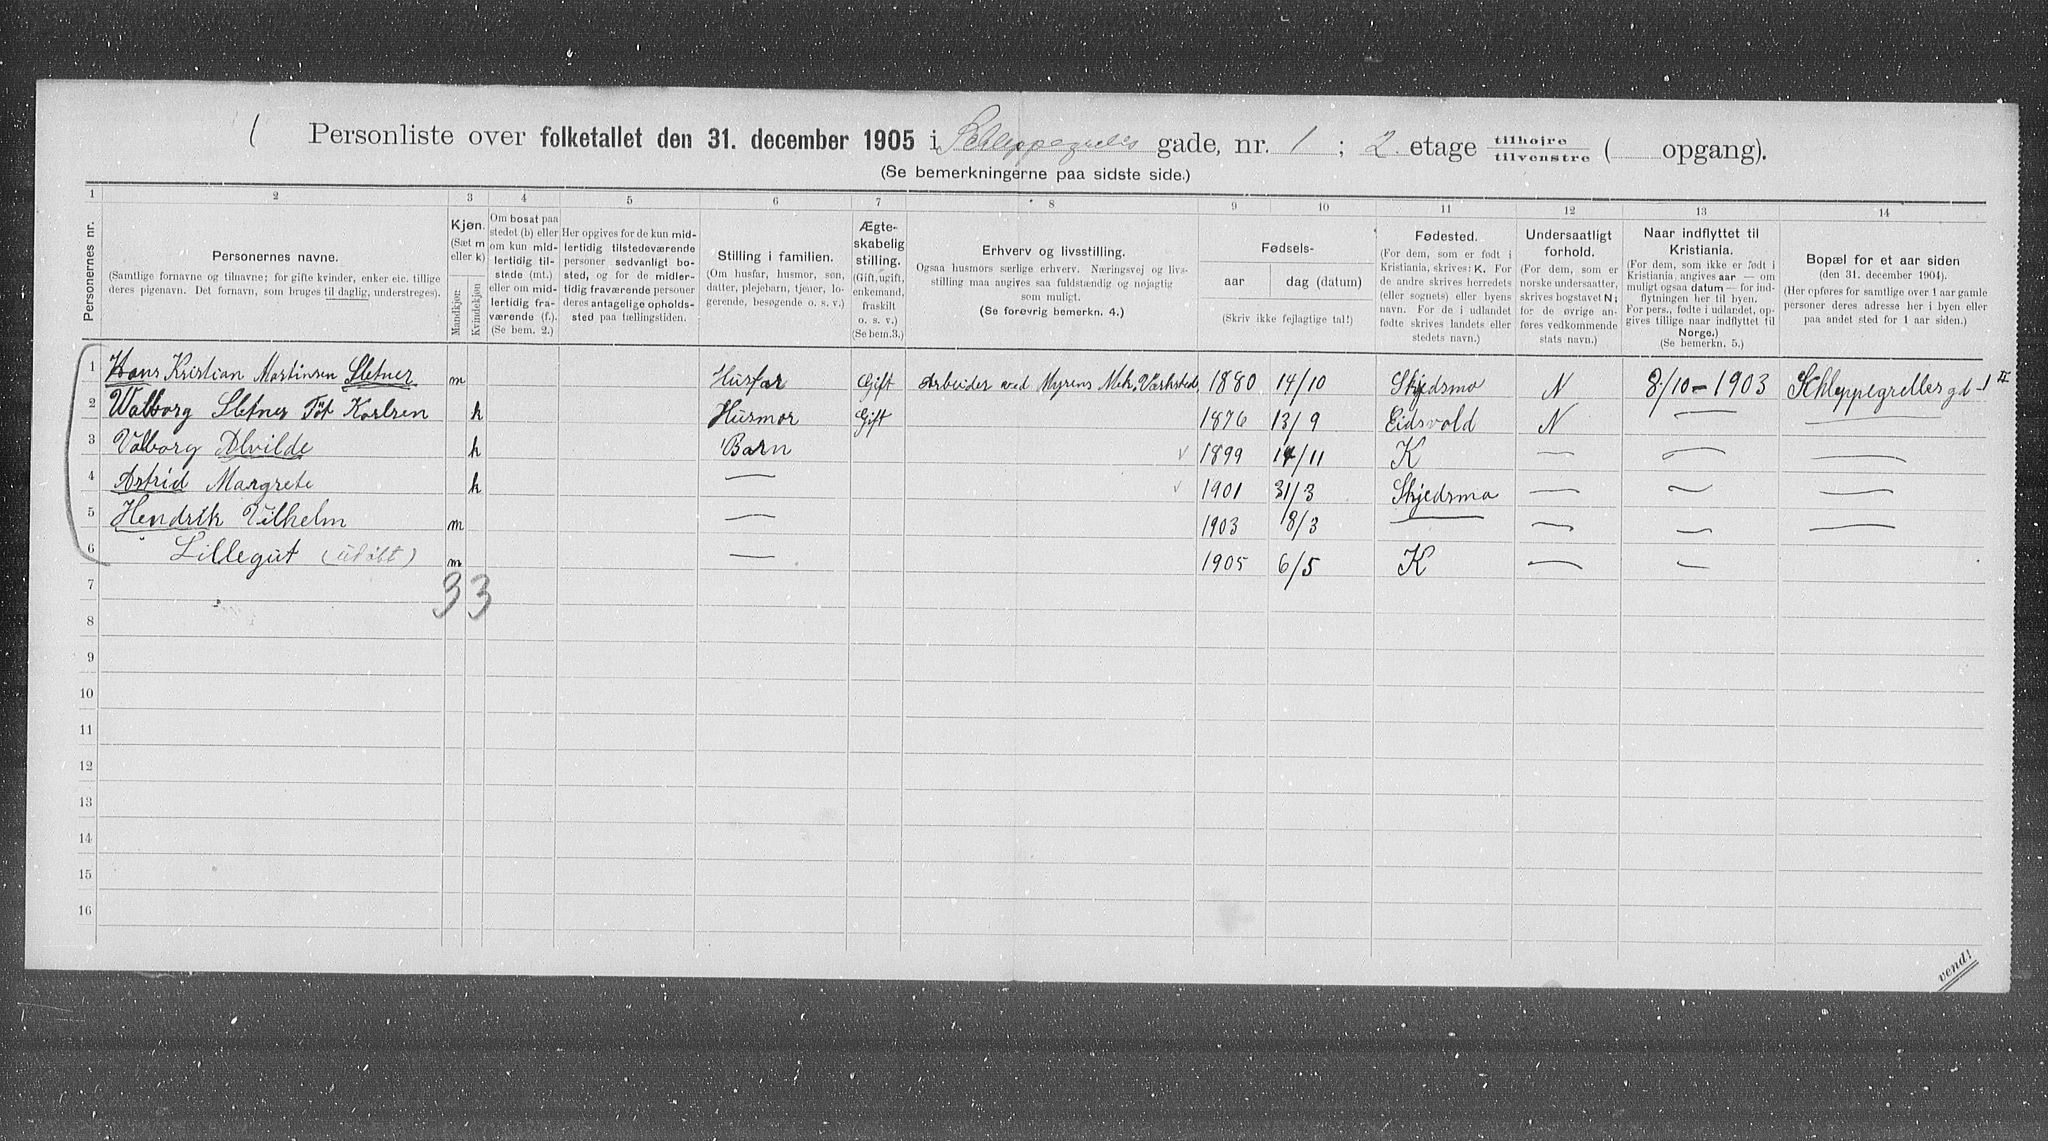 1 Personliste over folketallet den 31. december 1905 i Schleppegrells gade, nr. 1 ; 2. etage tilhøjre tilvenstre ( opgang).
(Se bemerkningerne paa sidste side.)
1 2 3 4 5 6 7 8 9 10 11 12 13 14
Personernes nr.
Personernes navne.
(Samtlige fornavne og tilnavne; for gifte kvinder, enker etc. tillige
deres pigenavn. Det fornavn, som bruges til daglig, understreges).
Kjøn.
(Sæt m
eller k)
Mandkjøn:
Kvindekjøn
Om bosat paa
stedet (b) eller
om kun mid-
lertidig til-
stede (mt.)
eller om mid-
lertidig fra-
værende (f.).
(Se bem. 2.)
Her opgives for de kun mid-
lertidig tilstedeværende
personer sedvanligt bo-
sted, og for de midler-
tidig fraværende personer
deres antagelige opholds-
sted paa tællingstiden.
Stilling i familien.
(Om husfar, husmor, søn,
datter, plejebarn, tjener, lo-
gerende, besøgende o. s. v.)
Ægte-
skabelig
stilling.
(Gift, ugift,
enkemand,
fraskilt
o. s. v.)
(Se bem.3.)
Erhverv og livsstilling.
Ogsaa husmors særlige erhverv. Næringsvej og livs-
stilling maa angives saa fuldstændig og nøjagtig
som muligt.
(Se forøvrig bemerkn. 4.)
Fødsels-
aar dag (datum)
(Skriv ikke fejlagtige tal!)
Fødested.
(For dem, som er født i
Kristiania, skrives: K. For
de andre skrives herredets
(eller sognets) eller byens
navn. For de i udlandet
fødte skrives landets eller
stedets navn.)
Undersaatligt
forhold.
(For dem, som er
norske undersaatter,
skrives bogstavet N;
for de øvrige an-
føres vedkommende
stats navn.)
Naar indflyttet til
Kristiania.
(For dem, som ikke er født i
Kristiania, angives aar — om
muligt ogsaa datum — for ind-
flytningen her til byen.
For pers., fødte i udlandet, op-
gives tillige naar indflyttet til
Norge.)
(Se bemerkn. 5.)
Bopæl for et aar siden
(den 31. december 1904).
(Her opføres for samtlige over 1 aar gamle
personer deres adresse her i byen eller
paa andet sted for 1 aar siden.)
1 Hans Kristian Martinsen Sletner m Husfar Gift Arbeider ved Myrens Mek, Værksted, 1880 14/10 Skjedsmo N 8/10 – 1903 Schleppegrelles gd – 1 II
2 Walborg Sletner Föt Karlsen k Husmor Gift 1876 13/9 Eidsvold N — —
3 Valborg Alvilde k Barn v 1899 14/11 K — — —
4 Astrid Margrete k — v 1901 31/3 Skjedsmo — — —
5 Hendrik Vilhelm m — 1903 18/3 — — — —
6 Lillegut (udöbt) m — 1905 6/5 K — —
7 3 3
8
9
10
11
12
13
14
15
16
vend!